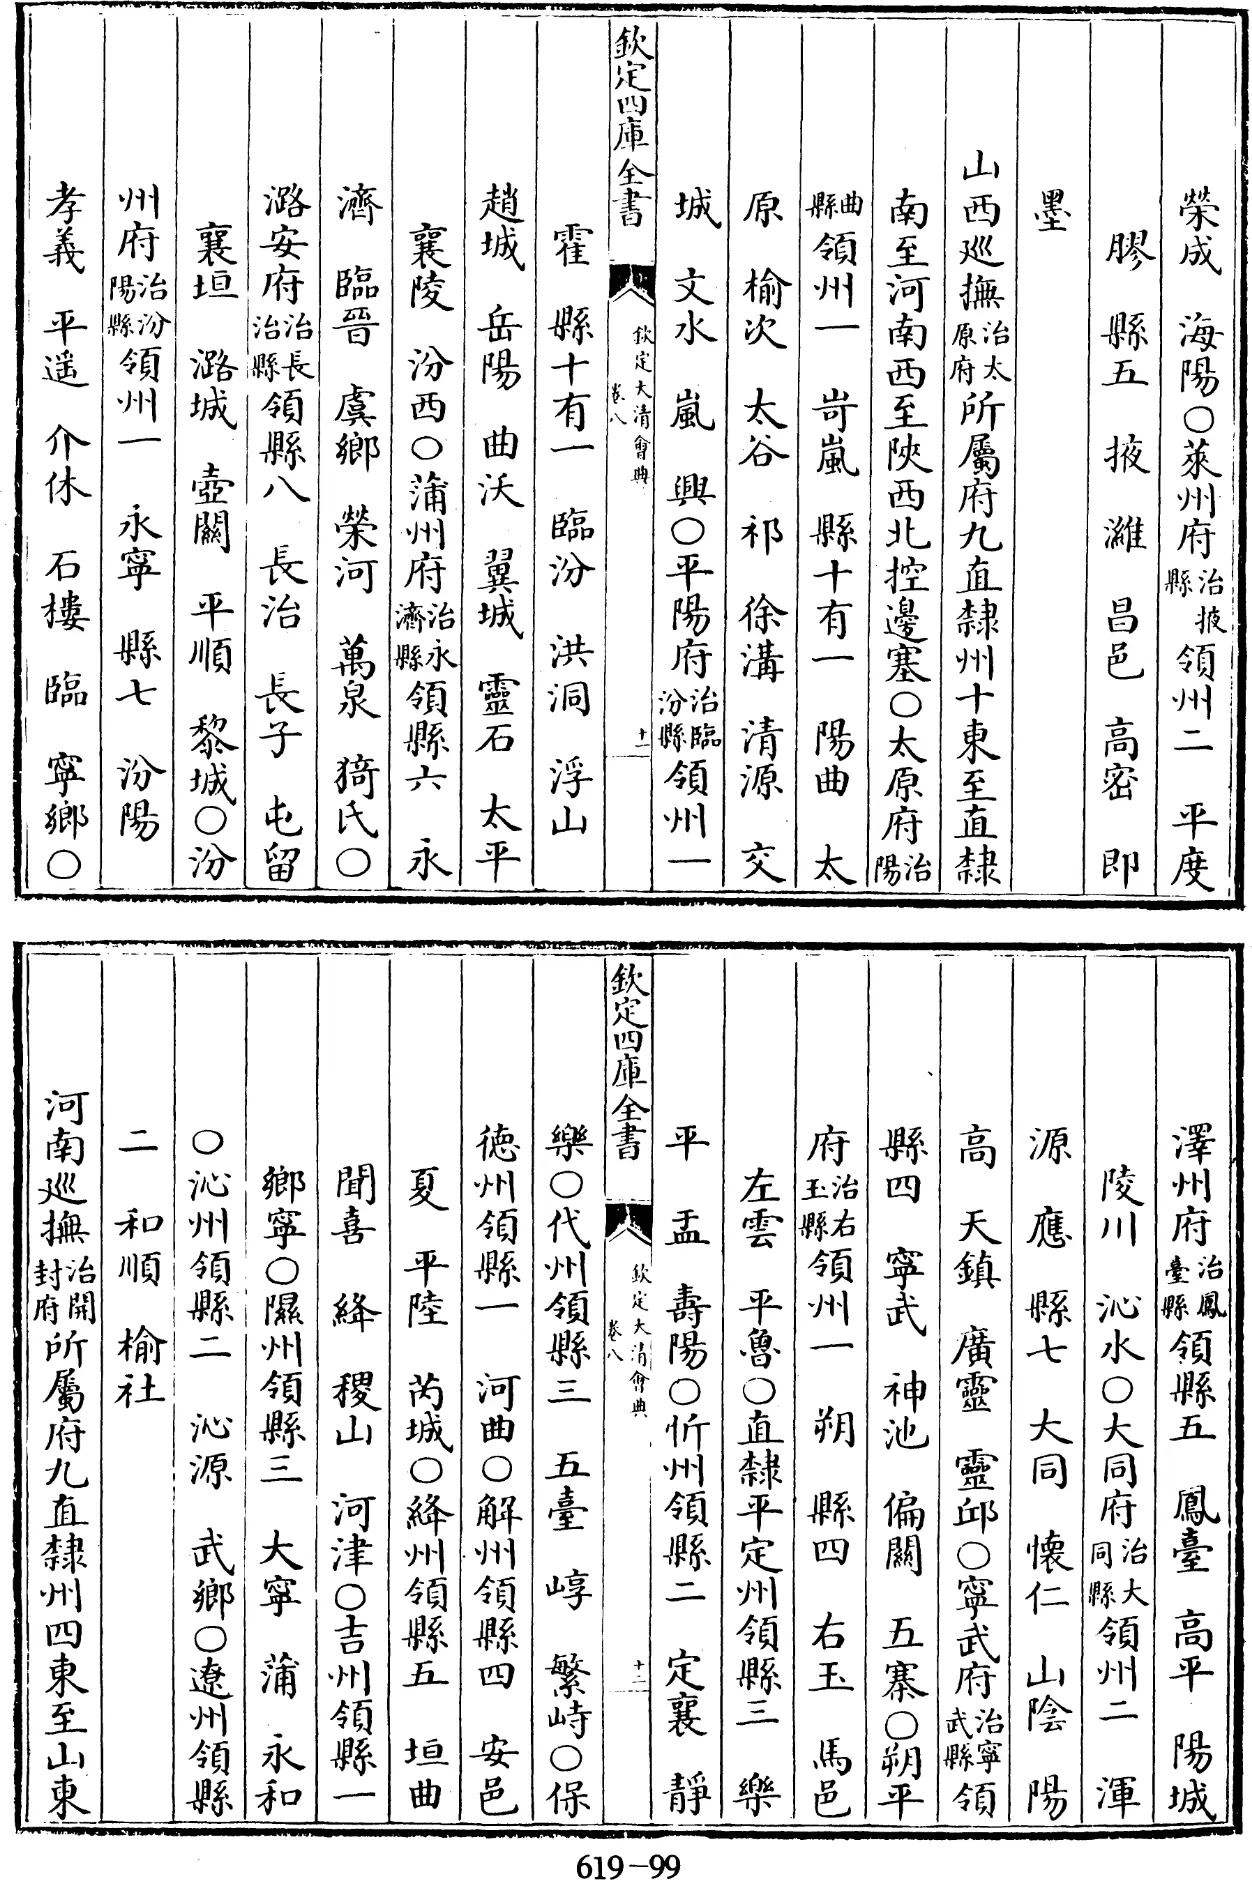 榮成　海陽〇萊州府治掖縣領州二　平度
膠　縣五　掖　濰　昌邑　高密　即
墨
山西巡撫治太原府所屬府九直隸州十東至直隸
南至河南西至陝西北控邊塞〇太原府治陽
曲縣領州一　岢嵐　縣十有一　陽曲　太
原　榆次　太谷　祁　徐溝　清源　交
城　文水　嵐　興〇平陽府治臨汾縣領州一
欽定四庫全書　欽定大清會典　卷八　十一
霍　縣十有一　臨汾　洪洞　浮山
趙城　岳陽　曲沃　翼城　靈石　太平
襄陵　汾西〇蒲州府治永濟縣領縣六　永
濟　臨晉　虞鄉　榮河　萬泉　猗氏〇
潞安府治長治縣領縣八　長治　長子　屯留
襄垣　潞城　壺關　平順　黎城〇汾
州府治汾陽縣領州一　永寧　縣七　汾陽
孝義　平遥　介休　石樓　臨　寧鄉〇
澤州府治鳳臺縣領縣五　鳳臺　高平　陽城
陵川　沁水〇大同府治大同縣領州二　渾
源　應　縣七　大同　懷仁　山陰　陽
高　天鎮　廣靈　靈邱〇寧武府治寧武縣領
縣四　寧武　神池　偏關　五寨〇朔平
府治右玉縣領州一　朔　縣四　右玉　馬邑
左雲　平魯〇直隸平定州領縣三　樂
平　盂　壽陽〇忻州領縣二　定襄　靜
欽定四庫全書　欽定大清會典　卷八　十二
樂〇代州領縣三　五臺　崞　繁峙〇保
德州領縣一　河曲〇解州領縣四　安邑
夏　平陸　芮城〇絳州領縣五　垣曲
聞喜　絳　稷山　河津〇吉州領縣一
鄉寧〇隰州領縣三　大寧　蒲　永和
〇沁州領縣二　沁源　武鄉〇遼州領縣
二　和順　榆社
河南巡撫治開封府所屬府九直隸州四東至山東
619-99